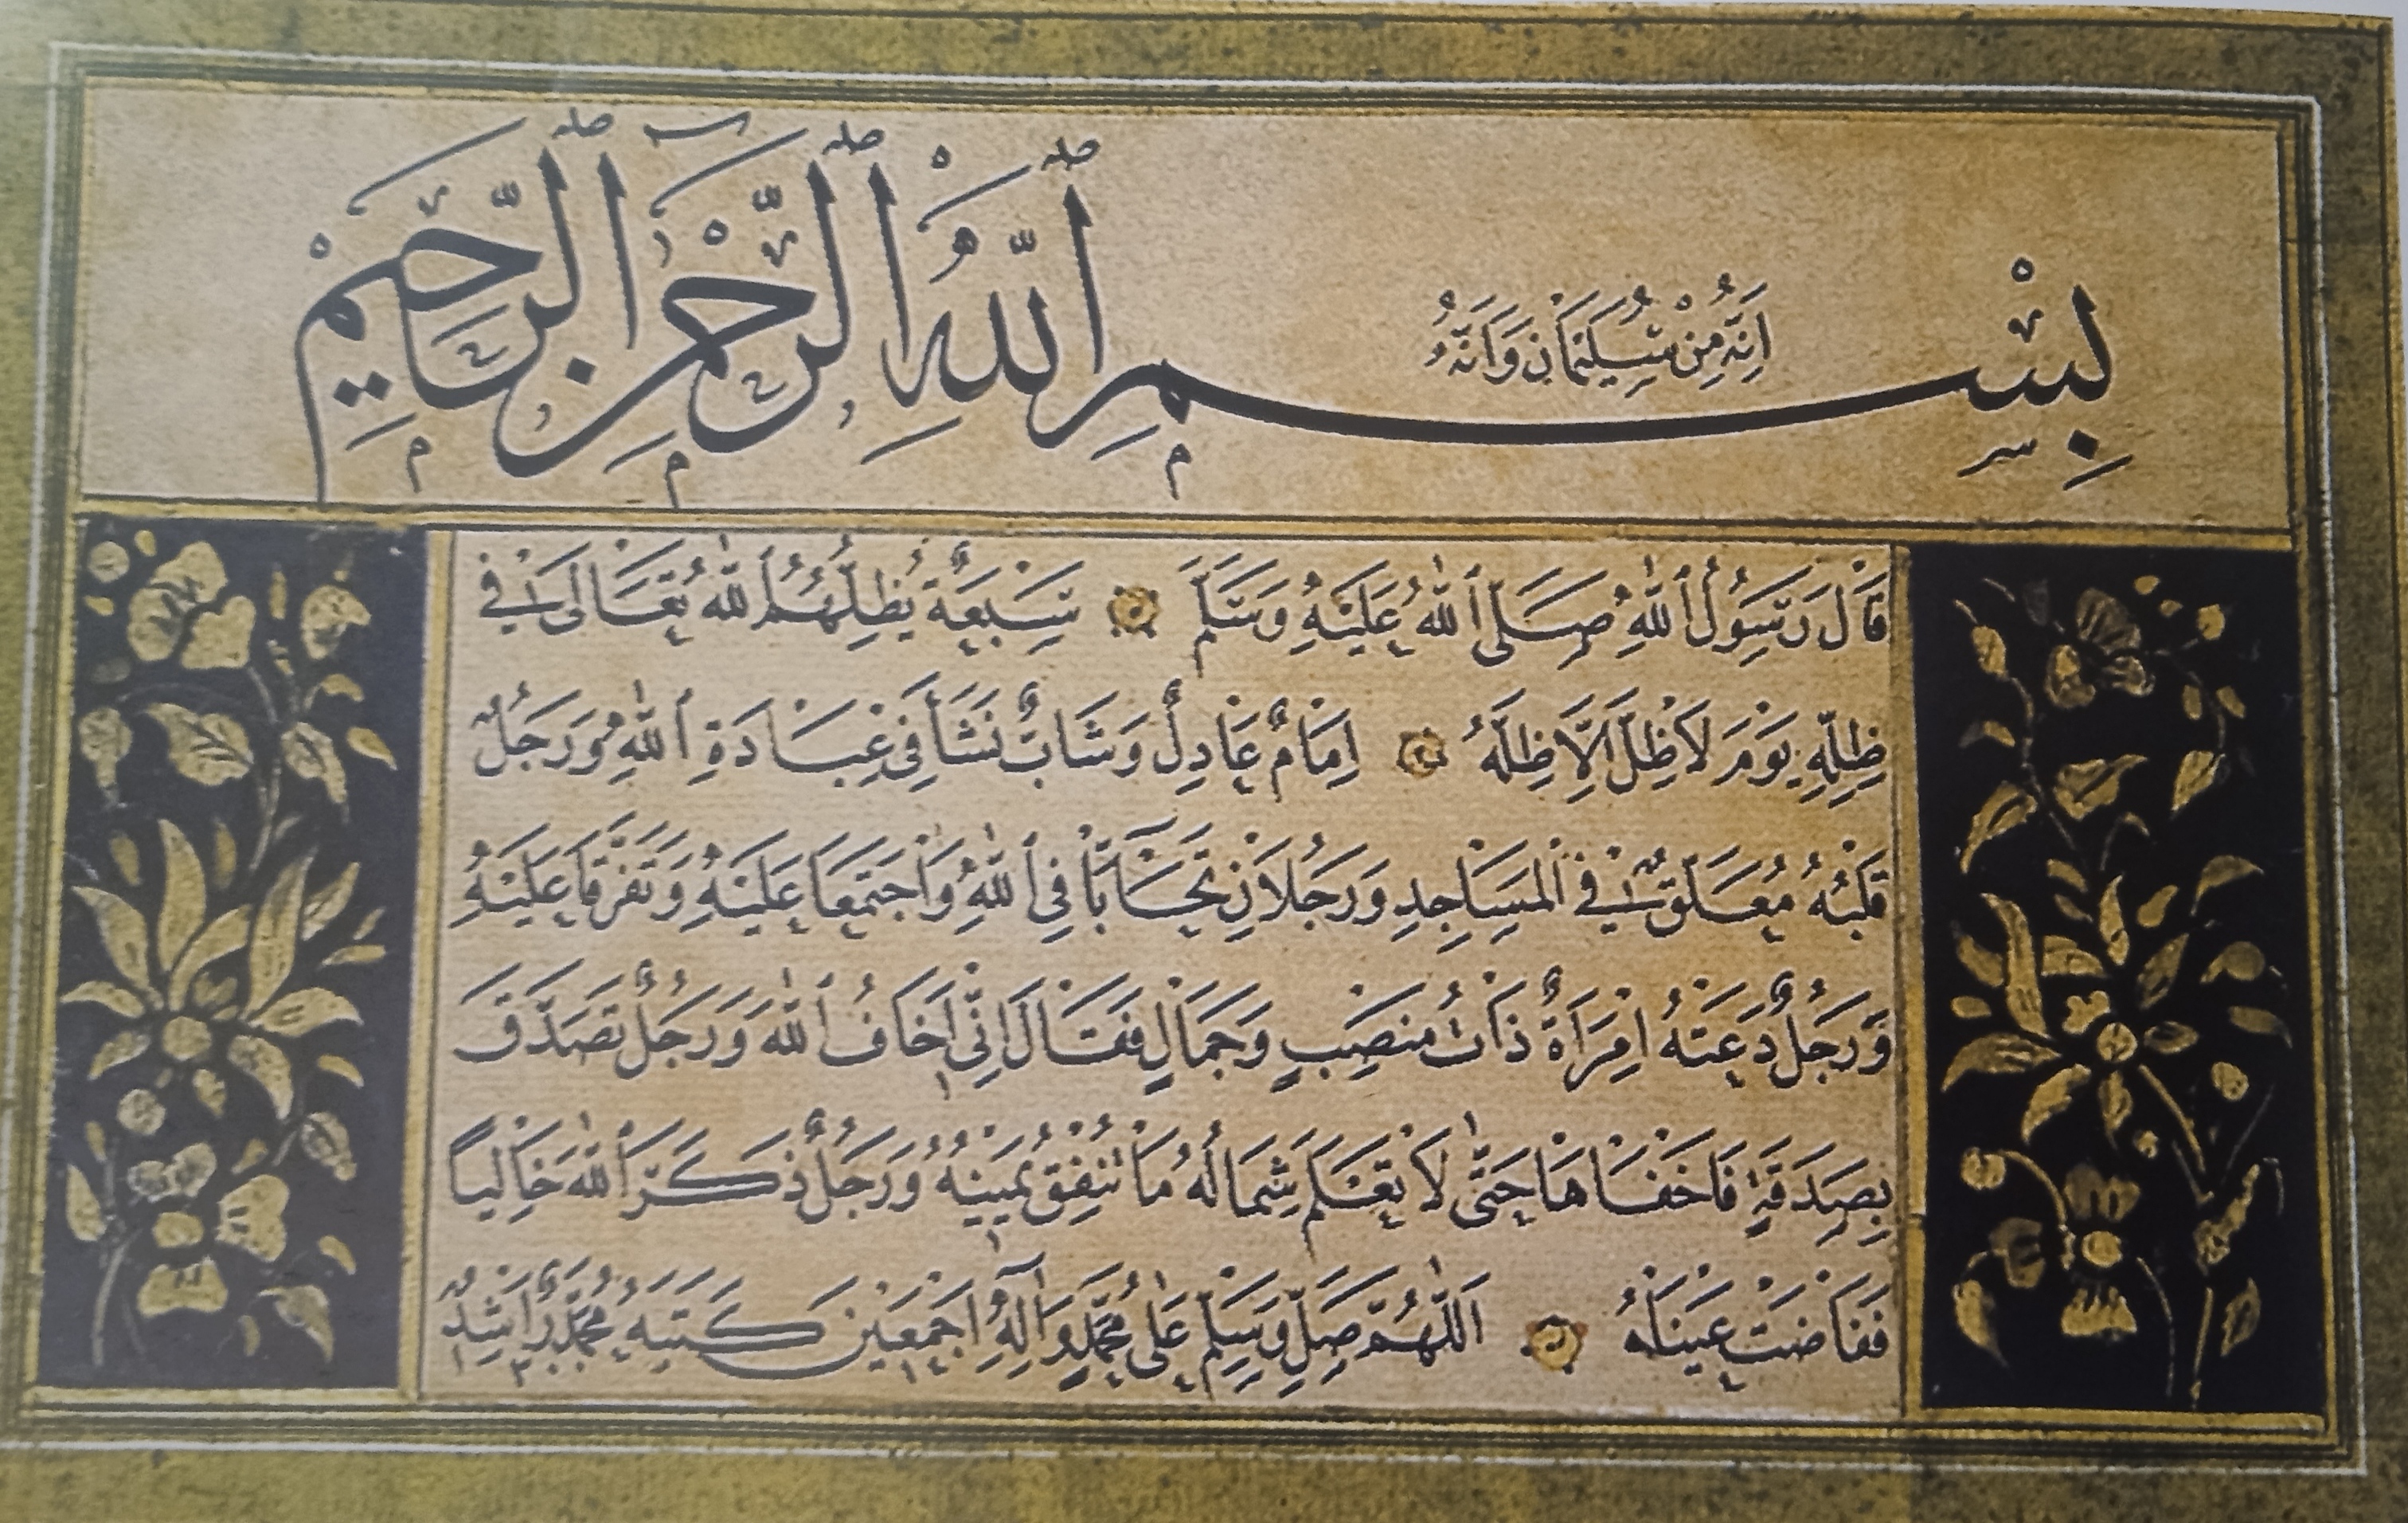 إنه من سليمان وإنه
بسم الله الرحمن الرحيم
قال رسول الله صلى الله عليه وسلم سبعة يظلهم الله تعالى في
ظله يوم لا ظل إلا ظله إمام عادل وشاب نشأ في عبادة الله ورجل
قلبه معلق في المساجد ورجلان تحابا في الله واجتمعا عليه وتفرقا عليه
ورجل دعته امرأة ذات منصب وجمال فقال إني أخاف الله ورجل تصدق
بصدقة فأخفاها حتى لا تعلم شماله ما تنفق يمينه ورجل ذكر الله خاليا
ففاضت عيناه اللهم صل وسلم على محمد وآله أجمعين كتبه محمد راشد